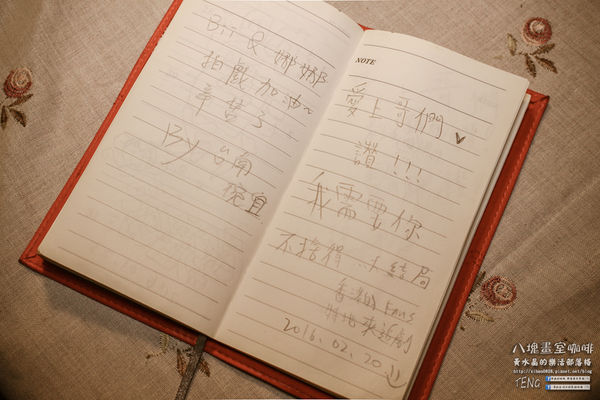 Bii & 娜娜
拍戲加油~
辛苦了
By 台南
婉宜
NOTE
愛上哥們
讚!!!
我需要你
不捨得..大結局
香港的 Fans
特地來追劇
2016.02.20
八塊畫室咖啡
黃水晶的樂活部落格
TENG